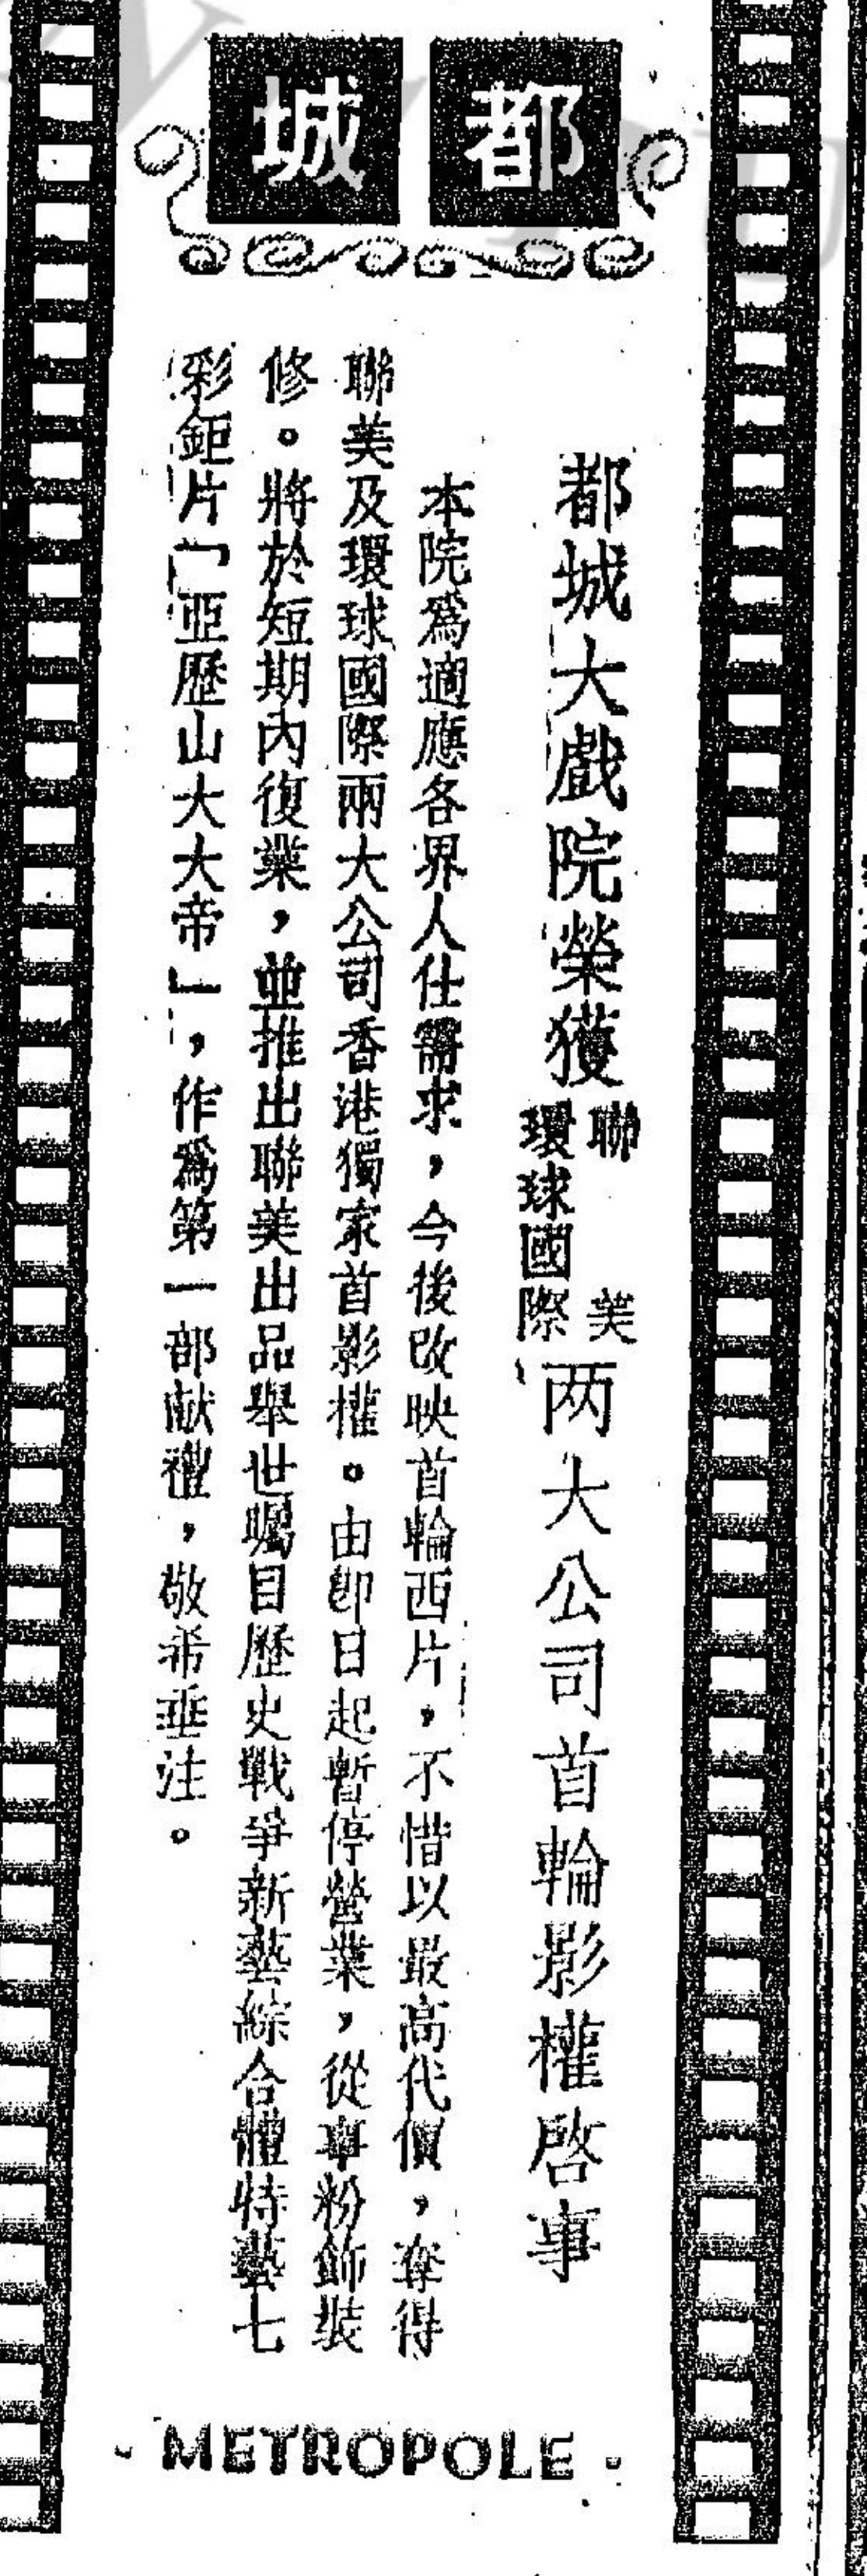 都城
都城大戲院榮獲聯美環球國際两大公司首輪影權啓事
本院爲適應各界人仕需求，今後改映首輪西片，不惜以最高代價，奪得
聯美及環球國際兩大公司香港獨家首影權。由即日起暫停營業，從事粉飾裝
修。將於短期內復業，並推出聯美出品舉世矚目歷史戰爭新藝綜合體特藝七
彩鉅片「亞歷山大大帝」，作爲第一部献禮，敬希垂注。
· METROPOLE ·